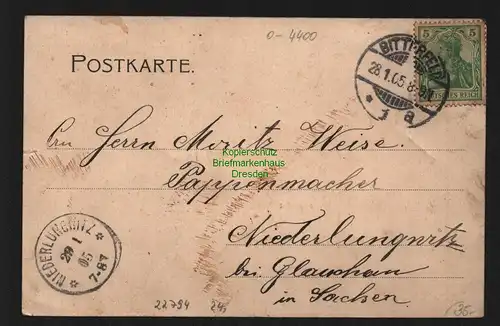 0-4400
BITTERFELD
28.1.05.8-9V.
* 1 a
5 5
DEUTSCHES REICH
POSTKARTE.
An Herrn Moritz Weise.
Kopierschutz
Briefmarkenhaus
Dresden
Pappenmacher
Niederlungwitz
bei Glauchau
in Sachsen
NIEDERLUNGWITZ
29 1
05
7-8V
22794 24,
/35-